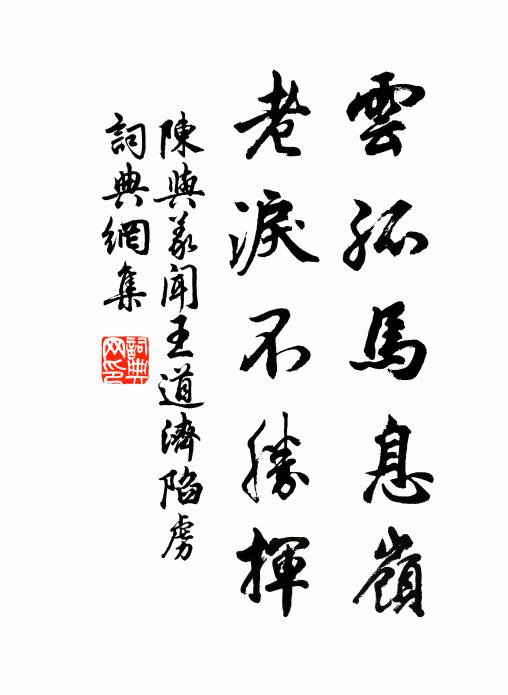 雲孤馬息嶺
老淚不勝揮
陳與義聞王道濟陷虜
詞典網集
詞典網印